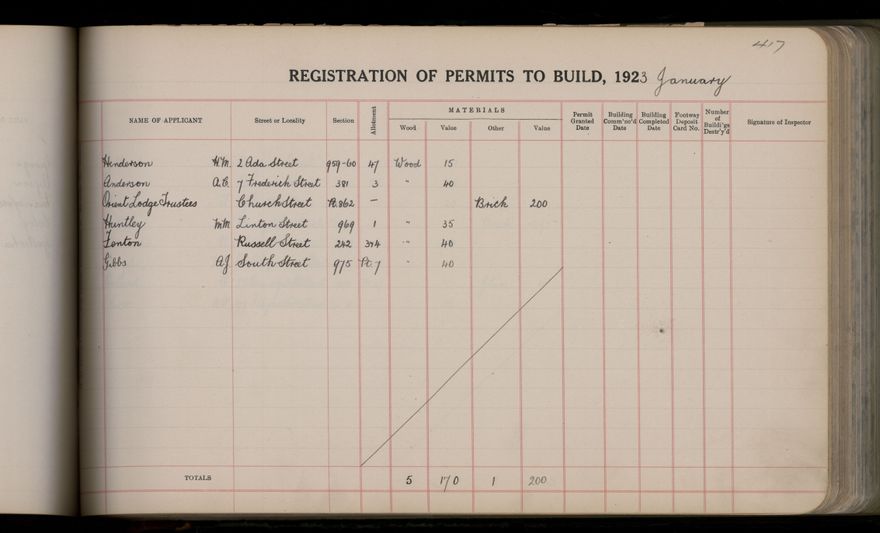 417
REGISTRATION OF PERMITS TO BUILD, 1923 January
NAME OF APPLICANT Street or Locality Section Allotment MATERIALS Wood Value Other Value Permit Granted Date Building Comm'nc'd Date Building Completed Date Footway Deposit Card No. Number of Build'gs Destr'y'd Signature of Inspector
Henderson Wm. 2 Ada Street 959-60 47 Wood 15
Anderson A.B. 7 Frederick Street 381 3 " 40
Orient Lodge Trustees Church Street Pt.862 — Brick 200
Huntley Mm Linton Street 969 1 " 35
Fenton Russell Street 242 3&4 " 40
Gibbs A.J. South Street 975 Pt.7 " 40
TOTALS 5 170 1 200